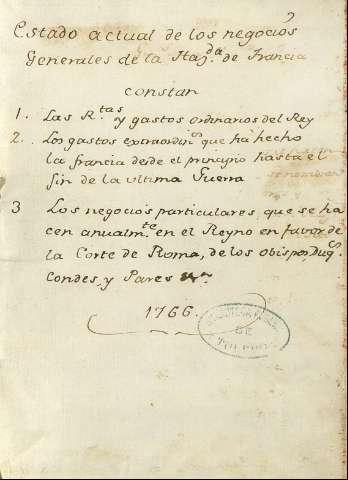 Estado actual de los negocios
Generales de la Haz.da de Francia
constan
1. Las R.tas y gastos ordinarios del Rey
2. Los gastos extraordin.s que ha hecho
la francia desde el principio hasta el
fin de la ultima Guerra
3 Los negocios particulares, que se ha
cen anualm.te en el Reyno en favor de
la Corte de Roma, de los obispos, Duq.s
Condes, y Pares
1766.
DE